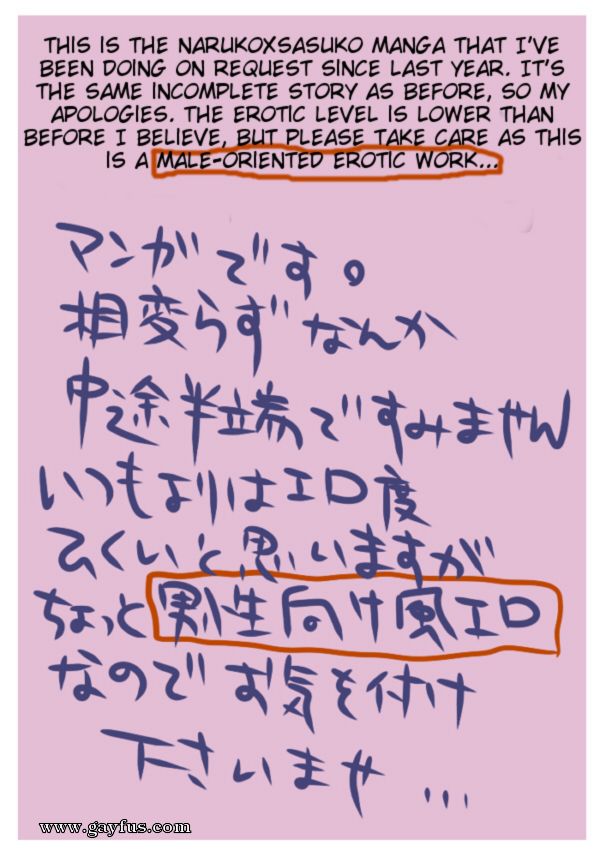 THIS IS THE NARUKOXSASUKO MANGA THAT I'VE
BEEN DOING ON REQUEST SINCE LAST YEAR. IT'S
THE SAME INCOMPLETE STORY AS BEFORE, SO MY
APOLOGIES. THE EROTIC LEVEL IS LOWER THAN
BEFORE I BELIEVE, BUT PLEASE TAKE CARE AS THIS
IS A MALE-ORIENTED EROTIC WORK...
マンガです。
相変らずなんか
中途半端ですみません
いつもよりはエロ度
ひくいと思いますが
ちょっと男性向け風エロ
なのでお気を付け
下さいませ...
www.gayfus.com